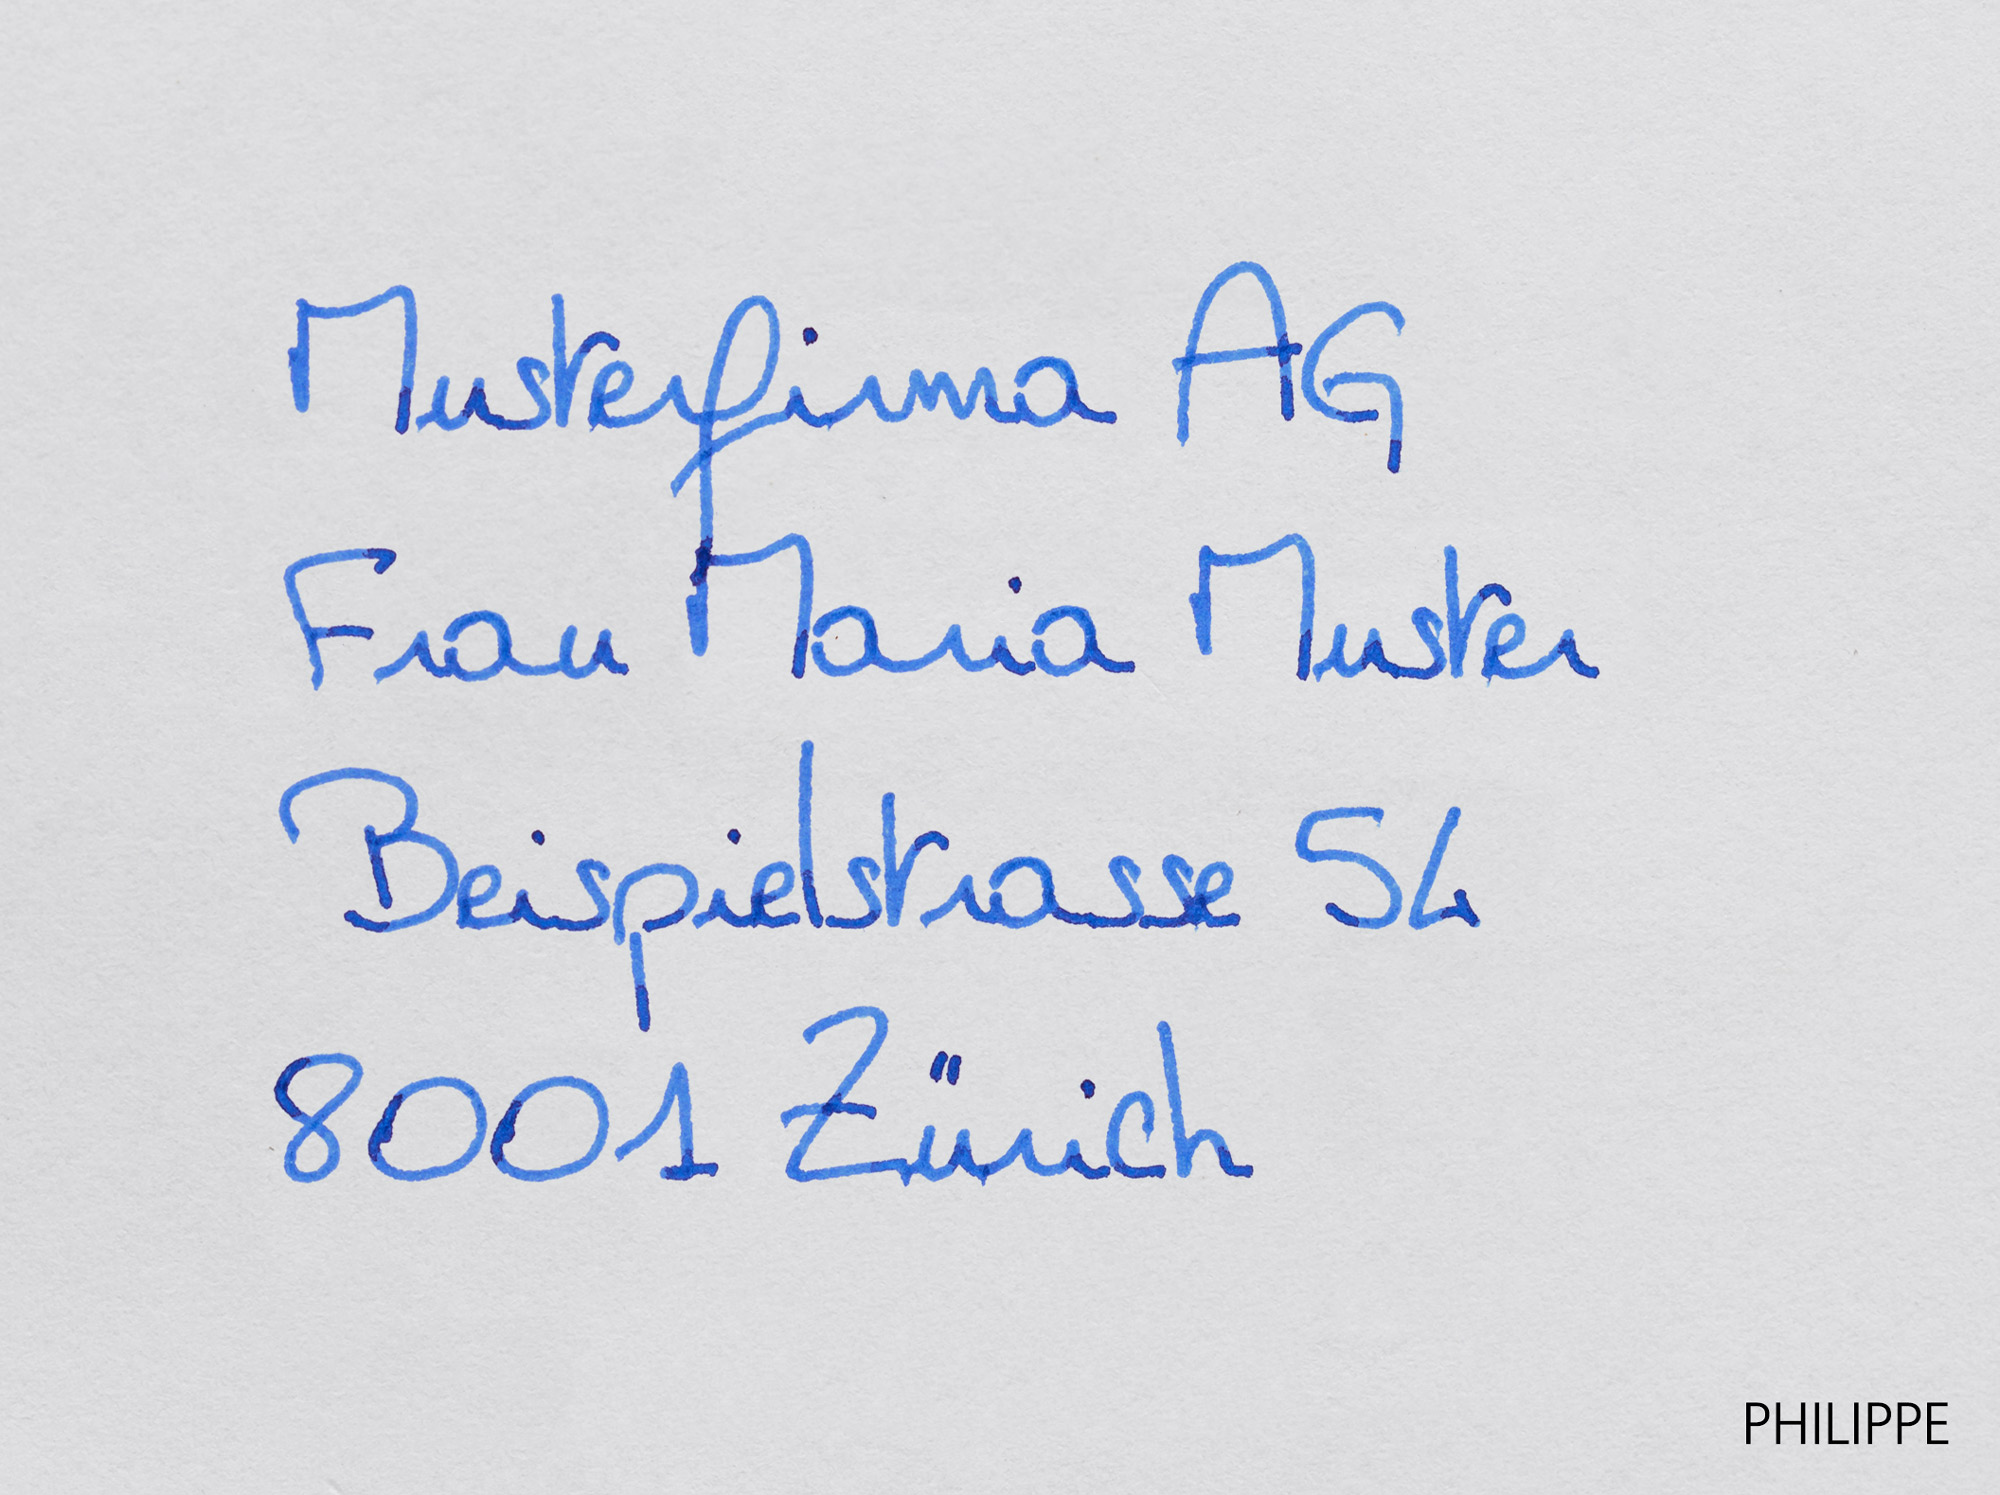 Musterfirma AG
Frau Maria Muster
Beispielstrasse 54
8001 Zürich
PHILIPPE